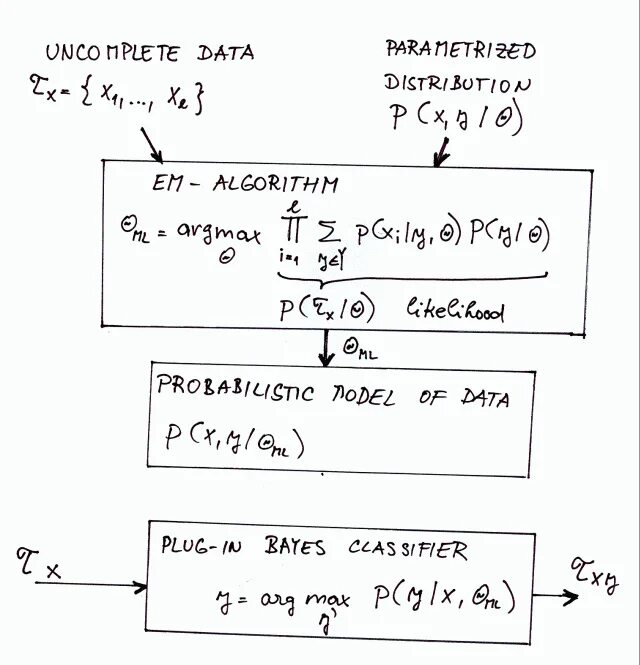 UNCOMPLETE DATA
𝒯x = { x1,..., xℓ }
PARAMETRIZED
DISTRIBUTION
P(x, y / Θ)
EM-ALGORITHM
ΘML = argmax Θ ∏ i=1 ℓ ∑ y∈Y P(xi / y, Θ) P(y / Θ)
P(𝒯x / Θ) likelihood
ΘML
PROBABILISTIC MODEL OF DATA
P(x, y / ΘML)
PLUG-IN BAYES CLASSIFIER
𝒯x
y = arg max y' P(y / x, ΘML)
𝒯xy